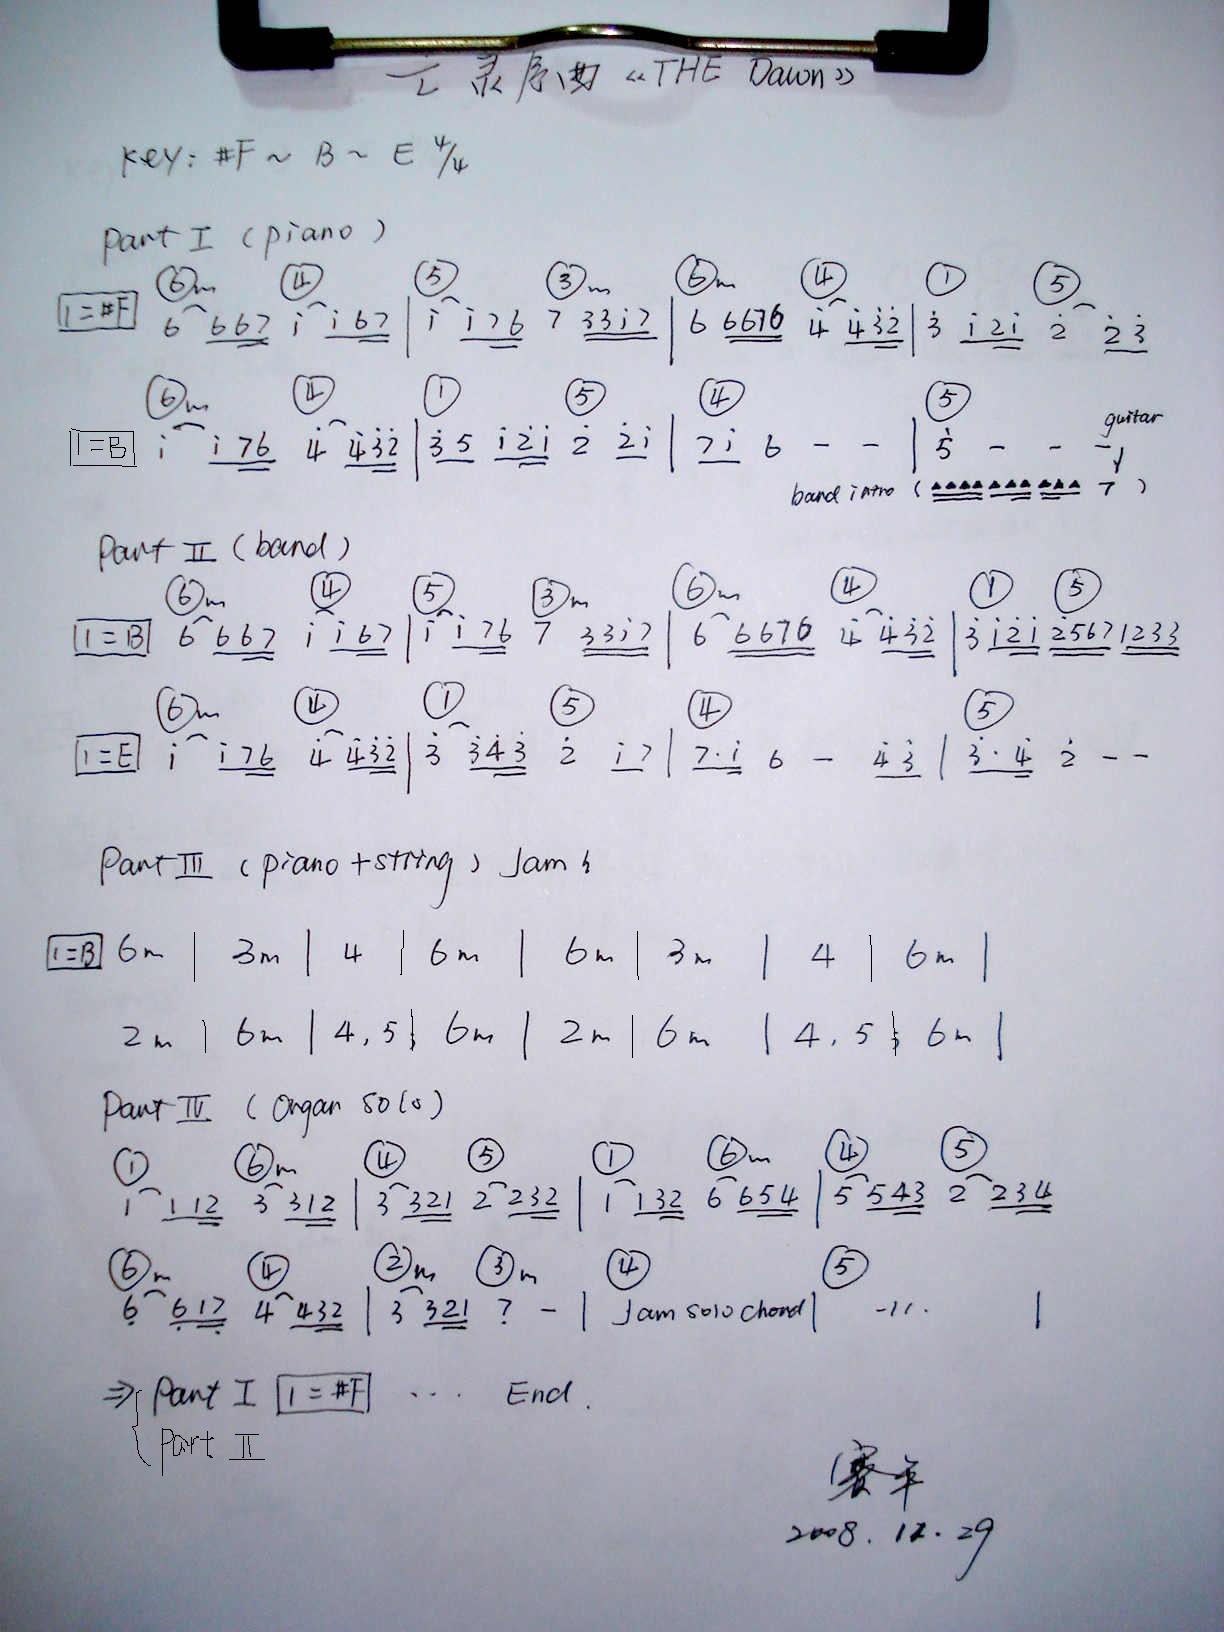 亡灵序曲 《THE Dawn》
Key: #F ~ B ~ E 4/4
Part I (piano)
⑥m ④ ⑤ ③m ⑥m ④ ① ⑤
1=#F 6 667 i i67 | i i76 7 33i7 | 6 6676 4̇ 4̇3̇2̇ | 3̇ i2̇i 2̇ 2̇3̇
⑥m ④ ① ⑤ ④ ⑤
guitar
1=B i i76 4̇ 4̇3̇2̇ | 3̇5 i2̇i 2̇ 2̇i | 7i 6 - - | 5̇ - - -
band intro ( ▲▲▲▲ ▲▲▲ ▲▲▲ 7 )
Part II (band)
⑥m ④ ⑤ ③m ⑥m ④ ① ⑤
1=B 6 667 i i67 | i i76 7 33i7 | 6 6676 4̇ 4̇3̇2̇ | 3̇ i2̇i 2̇567 1233
⑥m ④ ① ⑤ ④ ⑤
1=E i i76 4̇ 4̇3̇2̇ | 3̇ 3̇4̇3̇ 2̇ i7 | 7·i 6 - 4̇3̇ | 3̇·4̇ 2̇ - -
Part III (piano+string) Jam
1=B 6m | 3m | 4 | 6m | 6m | 3m | 4 | 6m |
2m | 6m | 4,5 | 6m | 2m | 6m | 4,5 | 6m |
Part IV (Organ solo)
① ⑥m ④ ⑤ ① ⑥m ④ ⑤
1 112 3 312 | 3 321 2 232 | 1 132 6 654 | 5 543 2 234
⑥m ④ ②m ③m ④ ⑤
6̣ 6̣17̣ 4 432 | 3 321 7̣ - | Jam solo chord | -11. |
⇒ Part I 1=#F ···· End.
Part II
赛平
2008.12.29